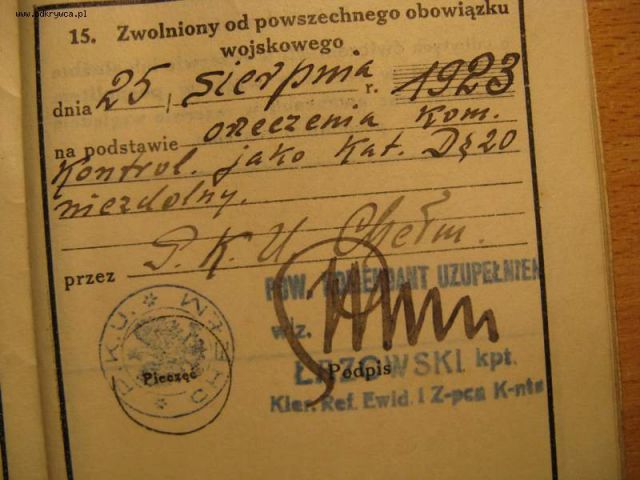 www.odkrywca.pl
15. Zwolniony od powszechnego obowiązku
wojskowego
dnia 25 sierpnia r. 1923
na podstawie orzeczenia Kom.
Kontrol. jako kat. D § 20
niezdolny.
przez P. K. U Chełm.
POW. KOMENDANT UZUPEŁNIEŃ
w/z.
ŁAZOWSKI kpt.
Podpis
Kier. Ref. Ewid. i Z-pca K-nta
P.K.U. CHEŁM
Pieczęć